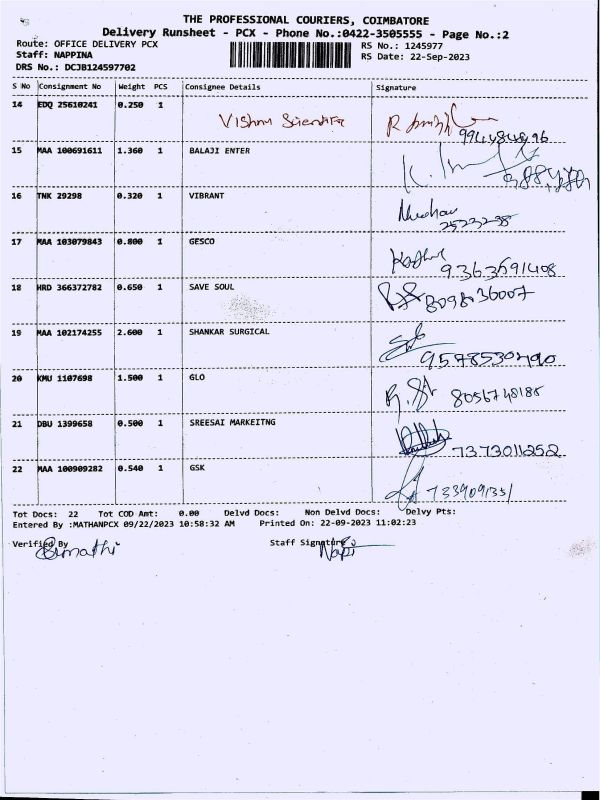 THE PROFESSIONAL COURIERS, COIMBATORE
Delivery Runsheet - PCX - Phone No.:0422-3505555 - Page No.:2
Route: OFFICE DELIVERY PCX RS No.: 1245977
Staff: NAPPINA RS Date: 22-Sep-2023
DRS No.: DCJB124597702
S No Consignment No Weight PCS Consignee Details Signature
14 EDQ 25610241 0.250 1 Vishnu
15 MAA 100691611 1.360 1 BALAJI ENTER
16 TNK 29298 0.320 1 VIBRANT
2523238
17 MAA 103079843 0.800 1 GESCO
9363691408
18 HRD 366372782 0.650 1 SAVE SOUL
8098136007
19 MAA 102174255 2.600 1 SHANKAR SURGICAL
9578530490
20 KMU 1107698 1.500 1 GLO 8056748185
21 DBU 1399658 0.500 1 SREESAI MARKEITNG
7373011252
22 MAA 100909282 0.540 1 GSK
7339091331
Tot Docs: 22 Tot COD Amt: 0.00 Delvd Docs: Non Delvd Docs: Delvy Pts:
Entered By :MATHANPCX 09/22/2023 10:58:32 AM Printed On: 22-09-2023 11:02:23
Verified By Staff Signature